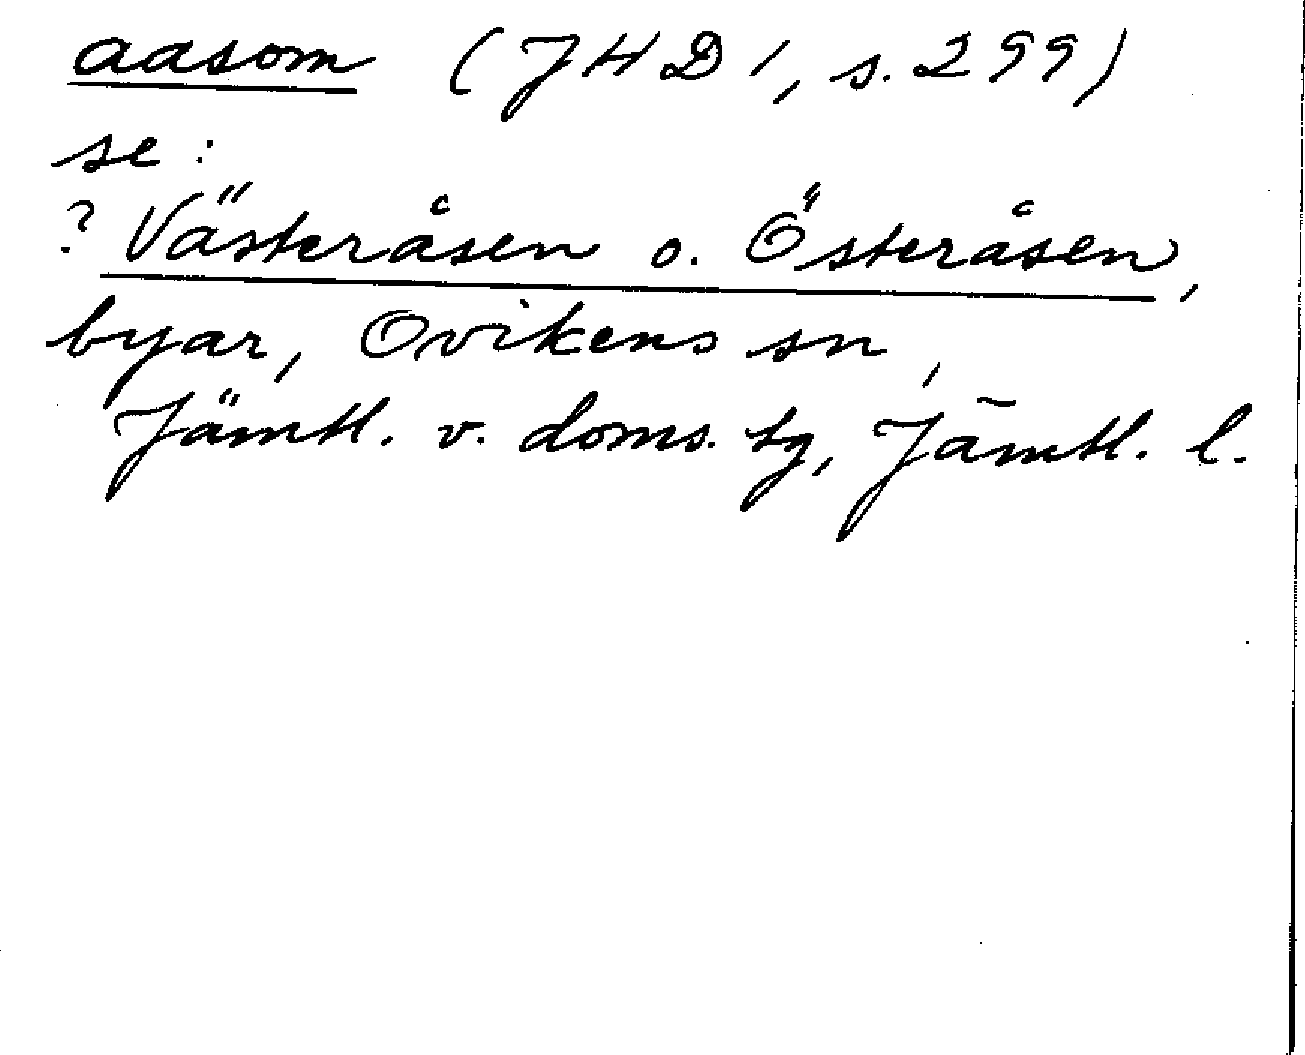 aasom (JHD 1, s. 299)
se:
? Västeråsen o. Österåsen,
byar, Ovikens sn,
Jämtl. v. doms. tg, Jämtl. l.